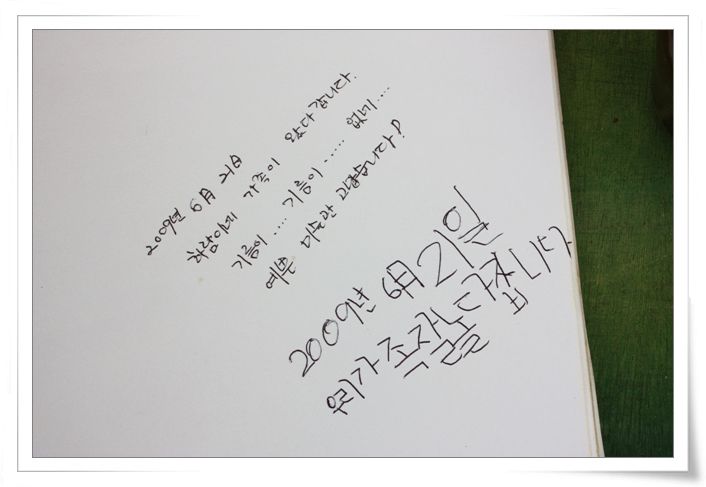 2009년 6月 21日
차람이네 가족이 왔다갑니다.
기름이 .... 기름이 ...... 없네....
예쁜 미술관 고맙습니다!
2009년 6月 21일
우리가족 잘놀다 갑니다